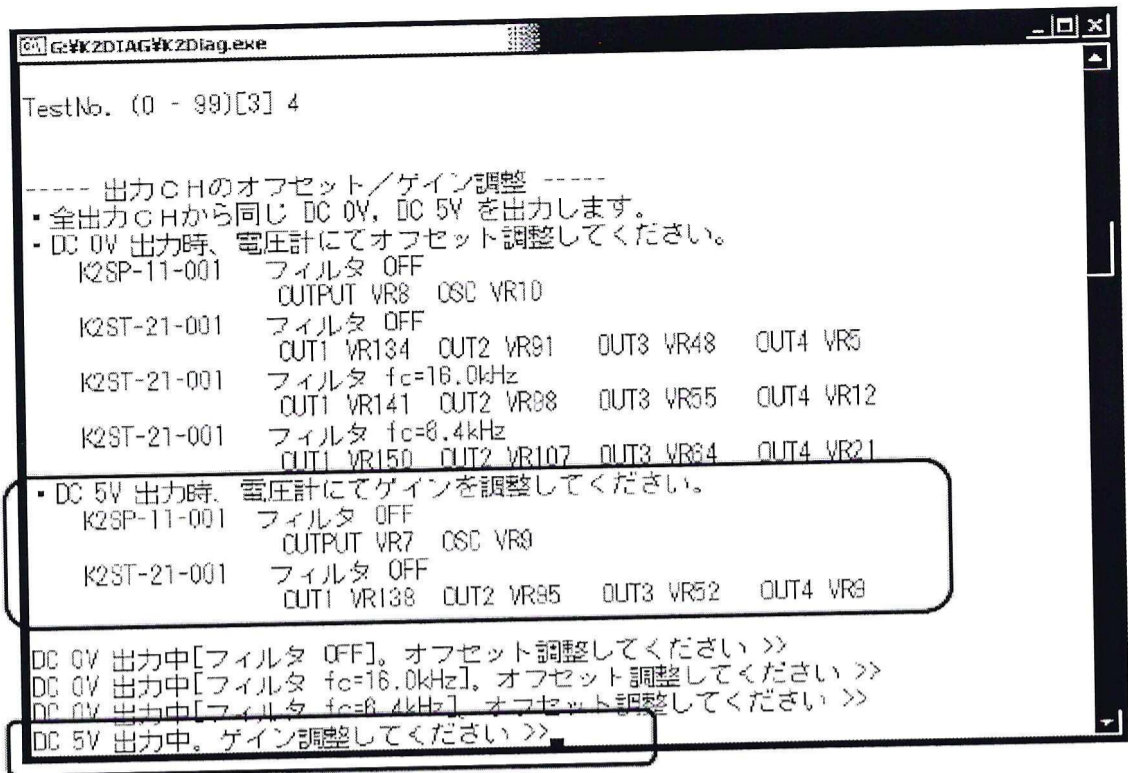 G:¥K2DIAG¥K2Diag.exe
TestNo. (0 - 99)[3] 4
----- 出力CHのオフセット／ゲイン調整 -----
・全出力CHから同じ DC 0V, DC 5V を出力します。
・DC 0V 出力時、電圧計にてオフセット調整してください。
K2SP-11-001 フィルタ OFF
OUTPUT VR8 OSC VR10
K2ST-21-001 フィルタ OFF
OUT1 VR134 OUT2 VR91 OUT3 VR48 OUT4 VR5
K2ST-21-001 フィルタ fc=16.0kHz
OUT1 VR141 OUT2 VR98 OUT3 VR55 OUT4 VR12
K2ST-21-001 フィルタ fc=6.4kHz
OUT1 VR150 OUT2 VR107 OUT3 VR64 OUT4 VR21
・DC 5V 出力時、電圧計にてゲインを調整してください。
K2SP-11-001 フィルタ OFF
OUTPUT VR7 OSC VR9
K2ST-21-001 フィルタ OFF
OUT1 VR138 OUT2 VR95 OUT3 VR52 OUT4 VR9
DC 0V 出力中[フィルタ OFF]。オフセット調整してください >>
DC 0V 出力中[フィルタ fc=16.0kHz]。オフセット調整してください >>
DC 0V 出力中[フィルタ fc=6.4kHz]。オフセット調整してください >>
DC 5V 出力中。ゲイン調整してください >>